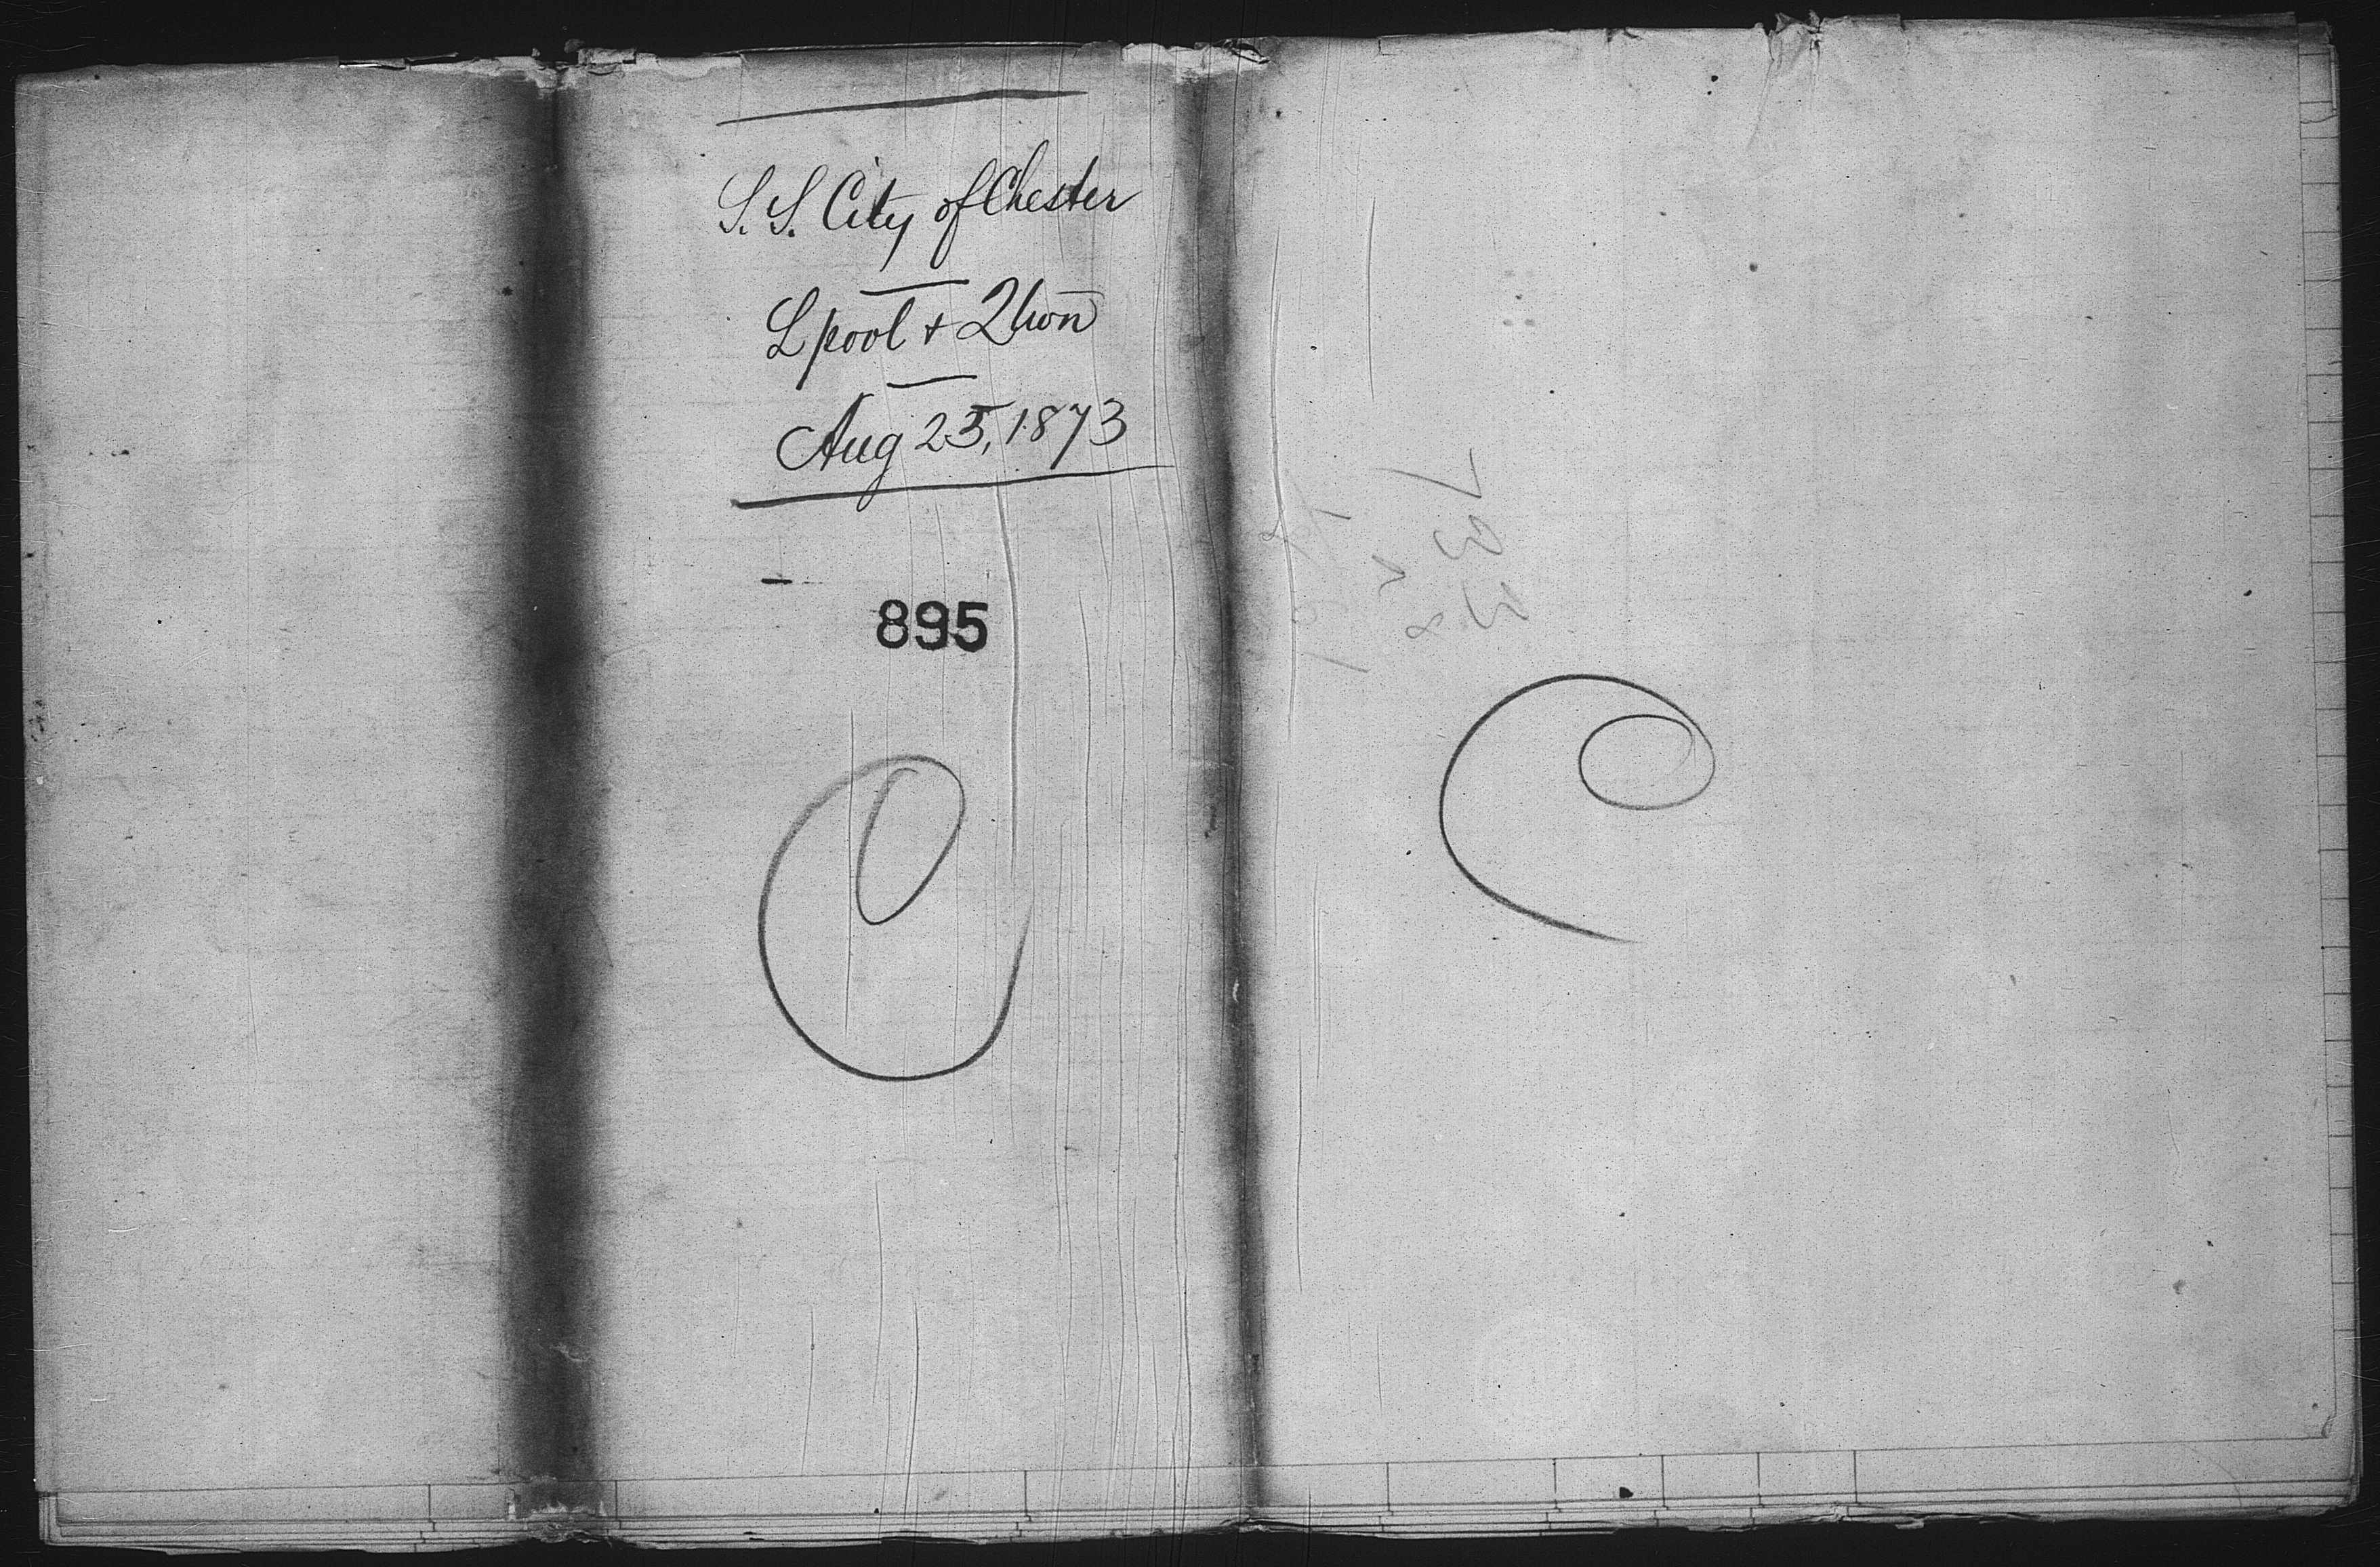 S. S. City of Chester
L pool + 2town
Aug 25, 1873
895
C